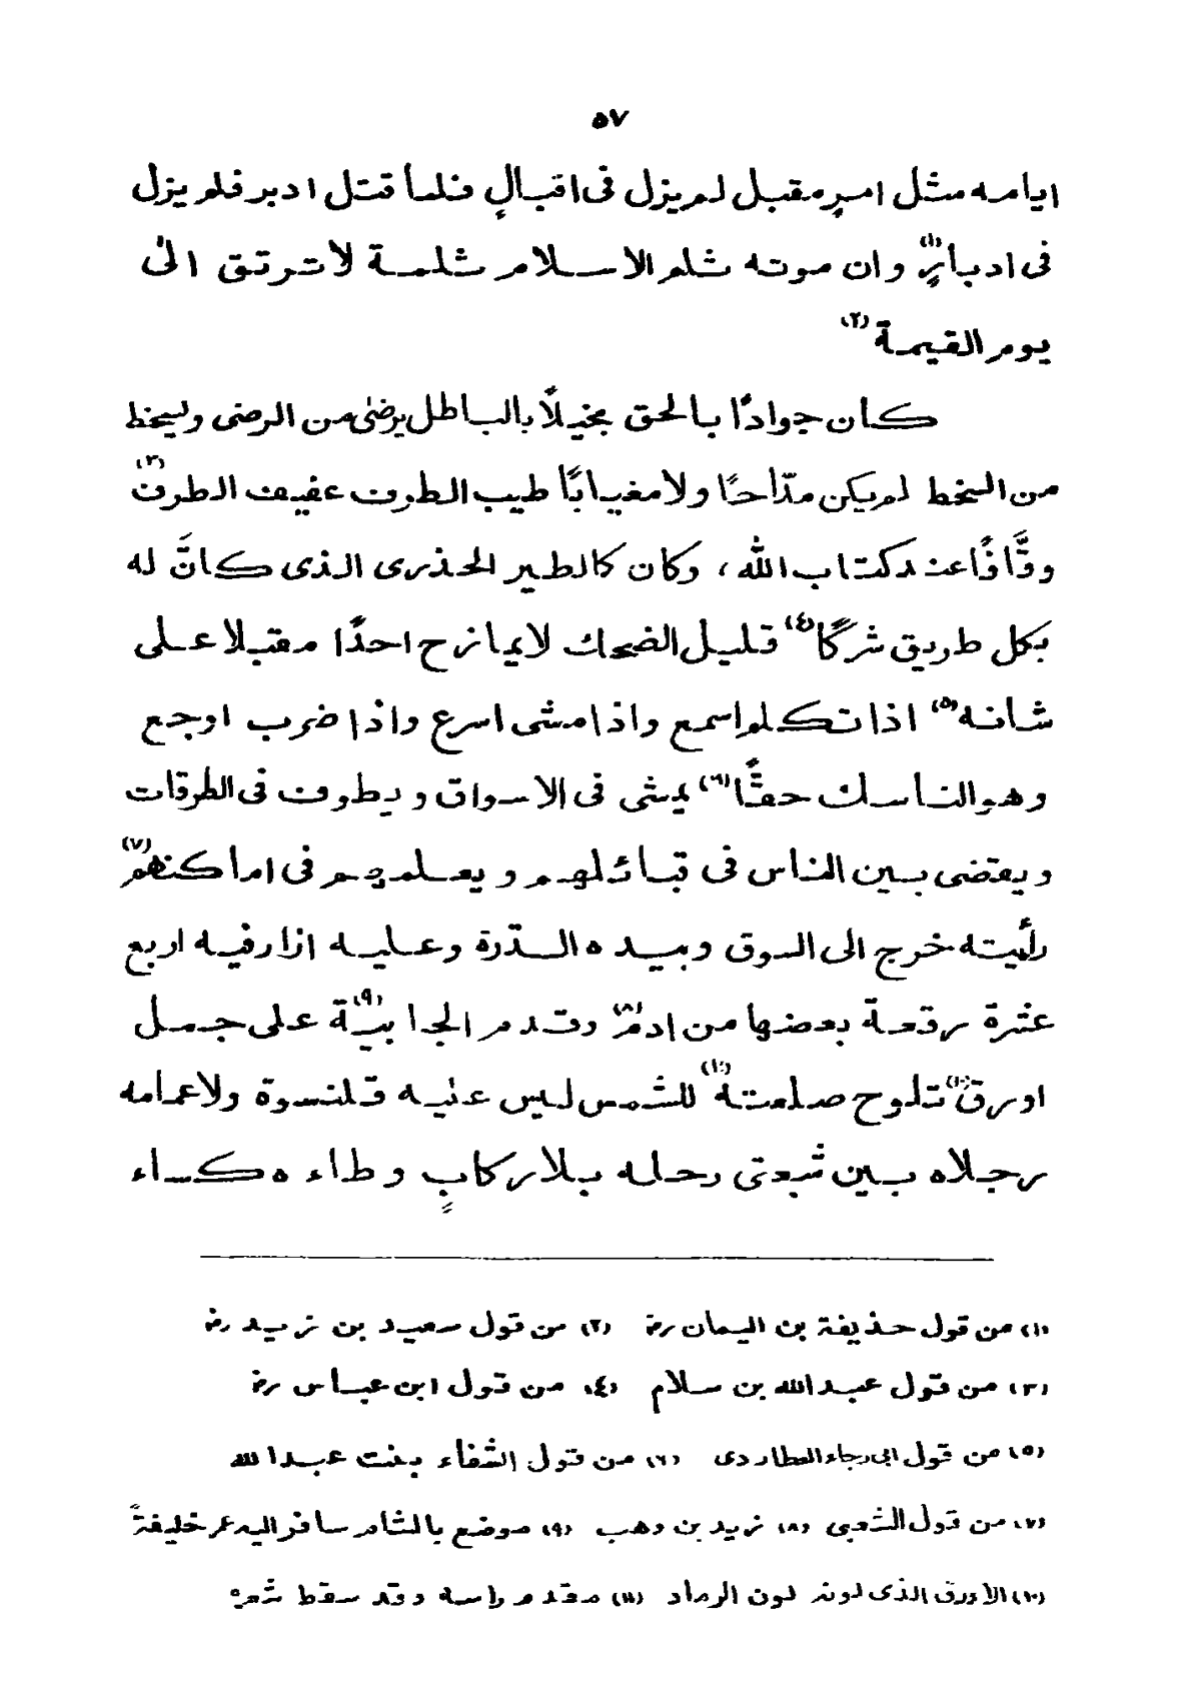 ٥٧
ايامه مثل امرٍ مقبل لم يزل فى اقبالٍ فلما قتل ادبر فلم يزل
فى ادبارٍ (١) وان موته ثلم الاسلام ثلمة لا ترتق الى
يوم القيمة (٢)
كان جوادًا بالحق بخيلًا بالباطل يرضىٰ من الرضى ويسخط
من السخط لم يكن مدّاحًا ولا مغيابًا طيب الطرف عفيف الطرف (٣)
وقَّافًا عند كتاب الله، وكان كالطير الحذرى الذى كانَّ له
بكل طريق شركًا (٤) قليل الضحك لا يمازح احدًا مقبلا على
شانه (٥) اذا تكلم اسمع واذا مشى اسرع واذا ضرب اوجع
وهو الناسك حقًّا (٦) يمشى فى الاسواق ويطوف فى الطرقات
ويقضى بين الناس فى قبائلهم ويعلمهم فى اماكنهم (٧)
رأيته خرج الى السوق وبيده الدّرة وعليه ازار فيه اربع
عشرة رقعة بعضها من ادم (٨) وقدم الجابيّة (٩) على جمل
اورق (١٠) تلوح صلعته (١٠) للشمس ليس عليه قلنسوة ولا عمامه
رجلاه بين شعبتى رحله بلا ركابٍ وطاءه كساء
(١) من قول حذيفة بن اليمان رض (٢) من قول سعيد بن زيد رض
(٣) من قول عبدالله بن سلام (٤) من قول ابن عباس رض
(٥) من قول ابى رجاء العطاردى (٦) من قول الشفاء بنت عبدالله
(٧) من قول الشعبى (٨) زيد بن وهب (٩) موضع بالشام سافر اليه عمر خليفةً
(١٠) الاورق الذى لونه لون الرماد (١١) مقدم راسه وقد سقط شعره